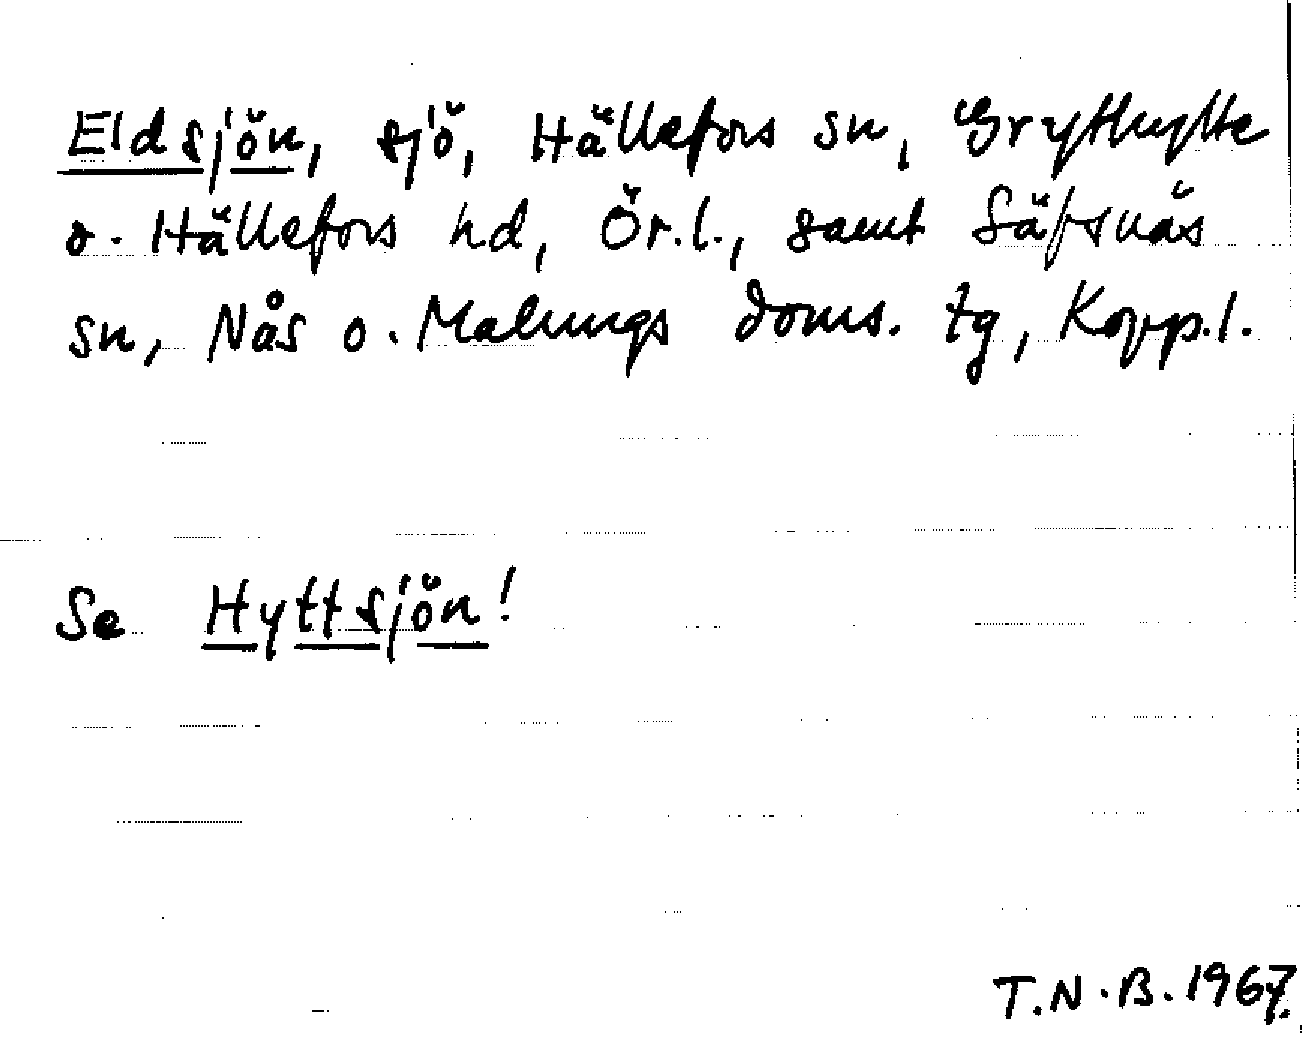 Eldsjön, sjö, Hällefors sn, Grythytte
o. Hällefors hd, Ör.l., samt Säfsnäs
sn, Nås o. Malungs doms. tg, Kopp.l.
Se Hyttsjön!
T.N.B. 1967.